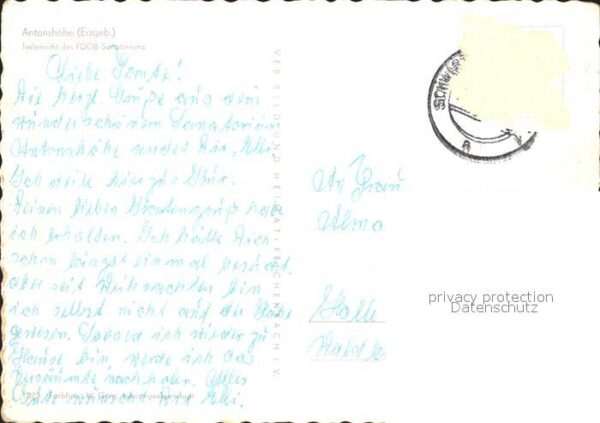 Antonshöhe (Erzgeb.)
Teilansicht des FDGB-Sanatoriums
Liebe Tante!
Die herzl. Grüße aus dem
wunderschönen Sanatorium
Antonshöhe sendet Dir, Elli.
Ich weile hier zur Kur.
Deinen lieben Kartengruß habe
ich erhalten. Ich hätte Dich
schon längst einmal besucht,
aber seit Weihnachten bin
ich selbst nicht auf der Höhe
gewesen. Sobald ich wieder zu
Hause bin, werde ich das
Versäumte nachholen. Alles
Gute wünscht Dir Elli.
VEB BILD UND HEIMAT REICHENBACH I. V.
An Frau
Alma
Halle
privacy protection
Datenschutz